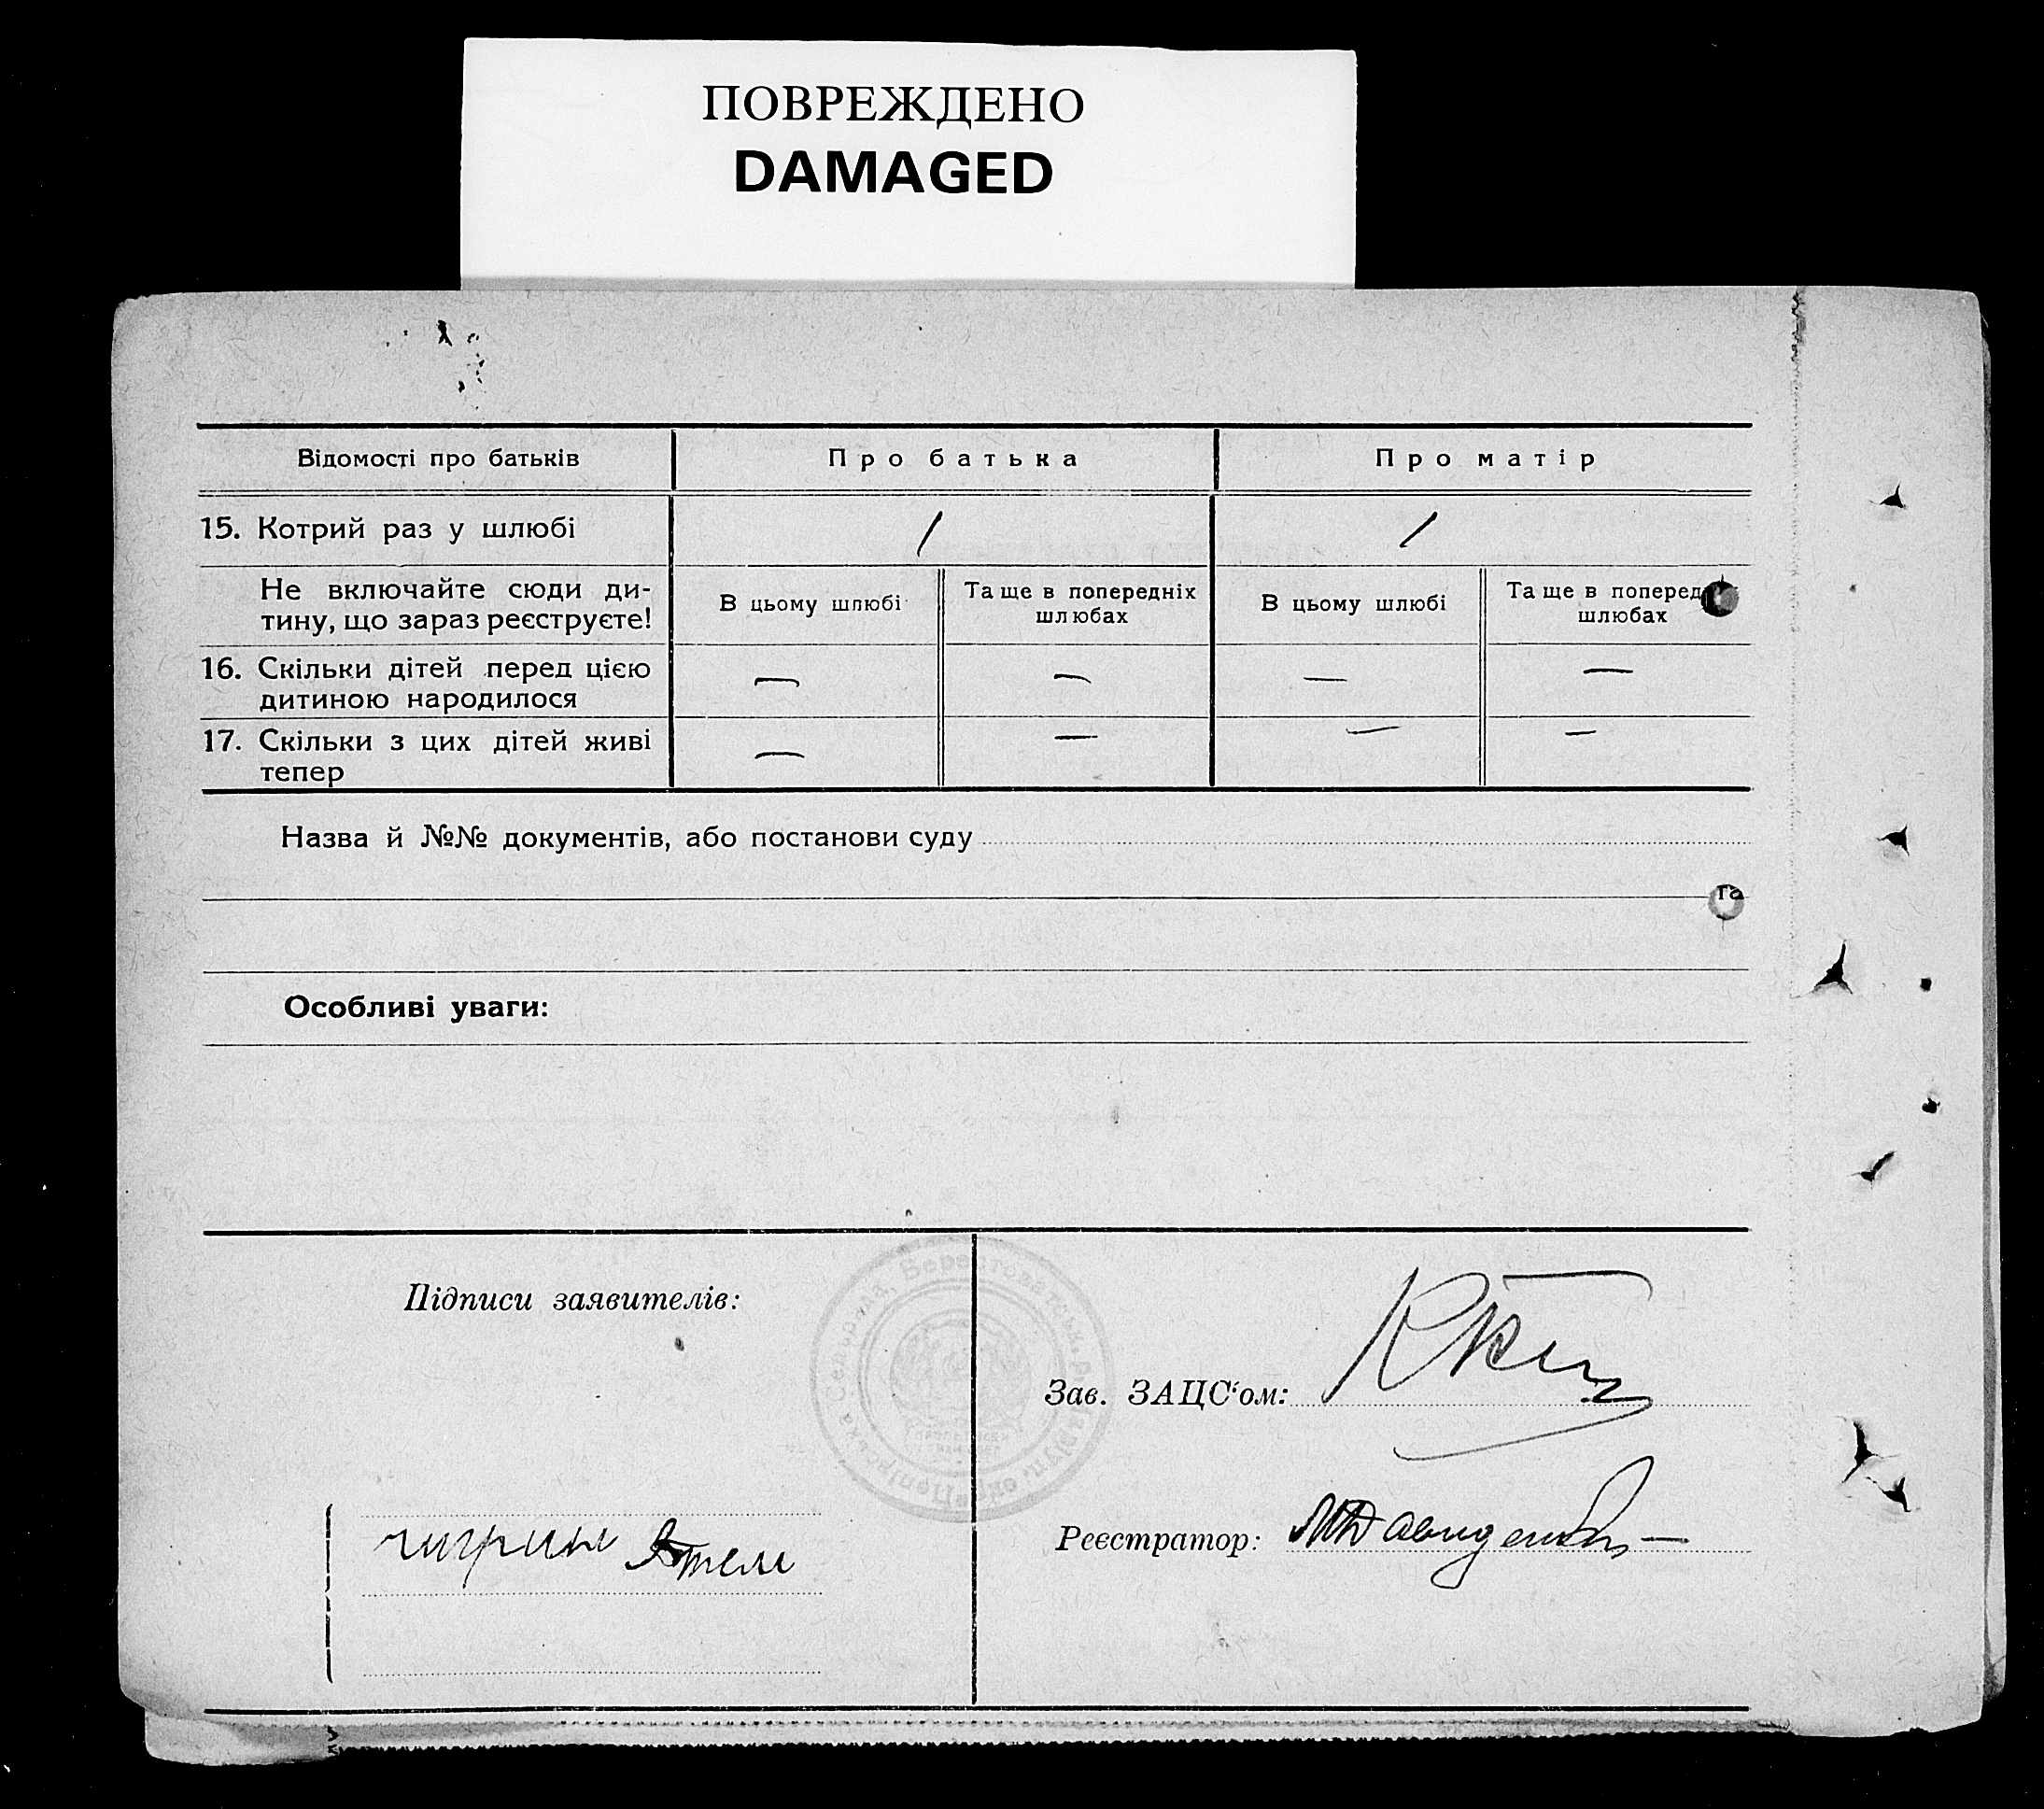 ПОВРЕЖДЕНО
DAMAGED
Відомості про батьків
Про батька
Про матір
15. Котрий раз у шлюбі
/
/
Не включайте сюди ди-
тину, що зараз реєструєте!
В цьому шлюбі
Та ще в попередніх
шлюбах
В цьому шлюбі
Та ще в поперед
шлюбах
16. Скільки дітей перед цією
дитиною народилося
—
—
—
—
17. Скільки з цих дітей живі
тепер
—
—
—
—
Назва й №№ документів, або постанови суду
та
Особливі уваги:
Підписи заявителів:
Зав. ЗАЦС'ом:
Реєстратор: